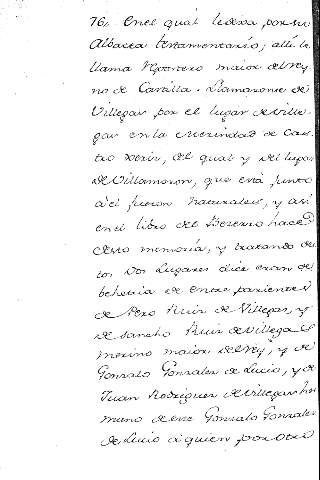 76, en el qual le dexa por su
Albacea testamentario; alli le
llama Repostero maior del rey
no de Castilla. Llamaronse de
Villegas por el lugar de Ville
gas en la merindad de Cas
tro xeris, del qual y del lugar
de Villamoron, que está junto
a él fueron naturales, y asi
en el libro del Bezerro hace
desto memoria, y tratando des
tos dos lugares dice eran de
behetria de entre parientes
de Pero Ruiz de Villegas, y
de Sancho Ruiz de Villegas
merino maior del rey, y de
Gonzalo Gonzalez de Lucio, y de
Juan Rodriguez de Villegas her
mano de este Gonzalo Gonzalez
de Lucio a quien por otro